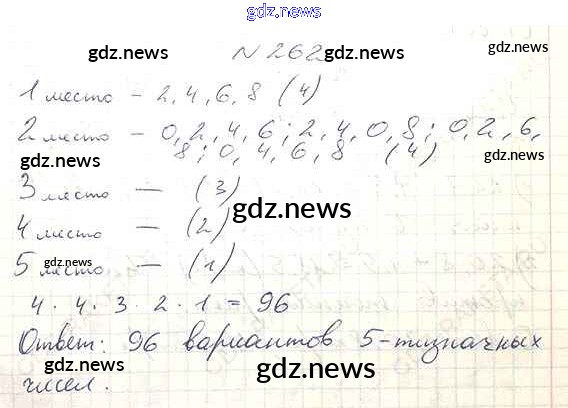 gdz.news
N 262
gdz.news gdz.news
1 место - 2, 4, 6, 8 (4)
2 место - 0, 2, 4, 6; 2, 4, 0, 8; 0, 2, 6,
8; 0, 4, 6, 8 (4)
gdz.news gdz.news
3 место — (3)
gdz.news
4 место — (2)
gdz.news
5 место — (1)
4 · 4 · 3 · 2 · 1 = 96
Ответ: 96 вариантов 5-тизначных
gdz.news gdz.news
чисел.